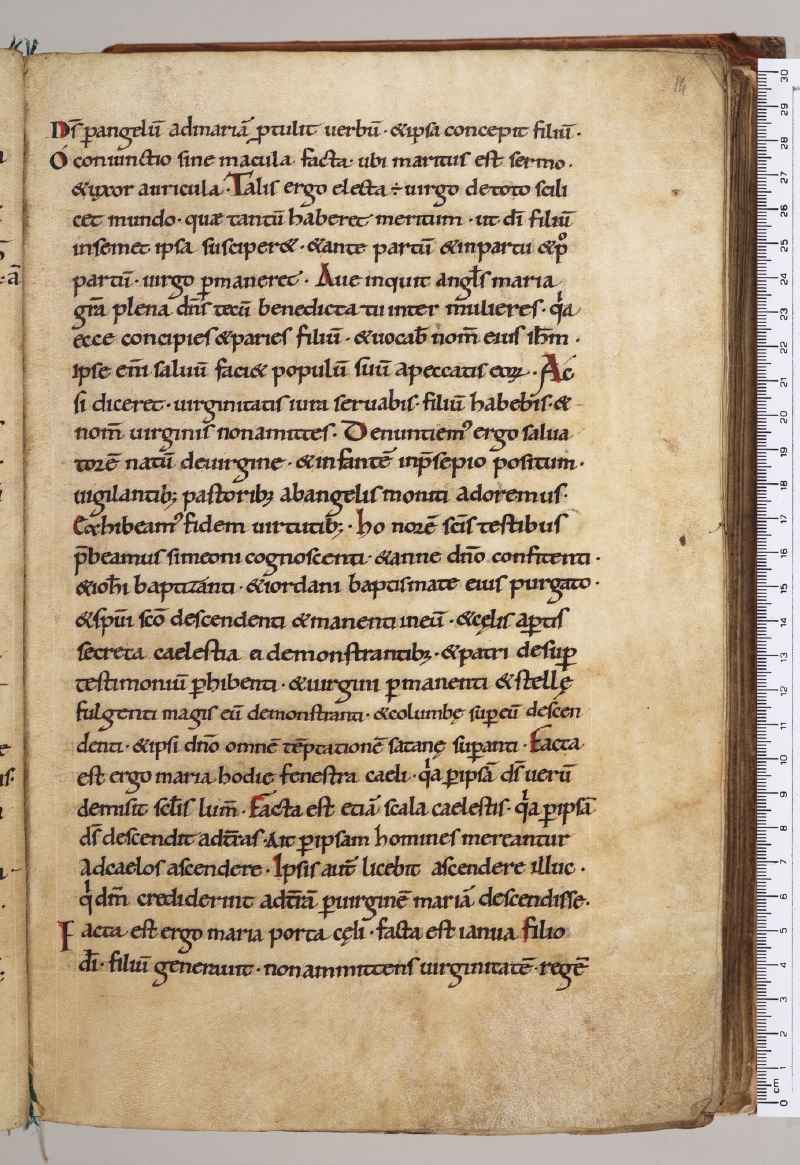 14
Ds̄ p angelū ad mariā ptulit uerbū · & ipsa concepit filiū ·
O coniunctio sine macula facta · ubi maritus est sermo ·
& uxor auricula · Talis ergo electa ÷ uirgo de toto scili
cet mundo · quæ tantū haberet meritum · ut dī filiū
in semet ipsa susciper& · & ante partū & in partu & p̊
partū · uirgo pmaneret · Aue inquit angl̄s maria
grā plena dn̄s tecū benedicta tu inter mulieres · qa
ecce concipies & paries filiū · & uocab̄ nom̄ eius ihm̄ ·
ipse em̄ saluū faci& populū suū a peccatis eoꝝ · Ac
si diceret · uirginitatis iura seruabis · filiū habebis · &
nom̄ uirginis non amittes · Denuntiem᾿ ergo salua
torē natū de uirgine · & infantē in psepio positum ·
uigilantib; pastorib; ab angelis moniti adoremus ·
Exhibeam᾿ fidem uirtutib; · ho norē scīs testibus
p̄beamus simeoni cognoscenti · & anne dn̄o confitenti ·
& iohī baptizánti · & iordani baptismate eius purgato ·
& spūi scō descendenti & manenti in eū · & cęlis aptis
secreta caelestia ei demonstrantib; · & patri desup
testimoniū phibenti · & uirgini pmanenti & stellę
fulgenti magis eū demonstranti · & columbę sup eū descen
denti · & ipsi dn̄o omnē tēptationē satanę supanti · Facta
est ergo maria hodie fenestra caeli · qa p ipsā ds̄ uerū
demisit sclīs lum̄ · Facta est etiā scala caelestis · qa p ipsā
ds̄ descendit ad tr̄as · Ait p ipsam homines mereantur
Ad caelos ascendere · Ipsis aut̄ licebit ascendere illuc ·
q dm̄ crediderint ad tr̄ā p uirginē mariā descendisse ·
Facta est ergo maria porta cęli · facta est ianua filio
dī · filiū generauit · non ammittens uirginitatē · regē